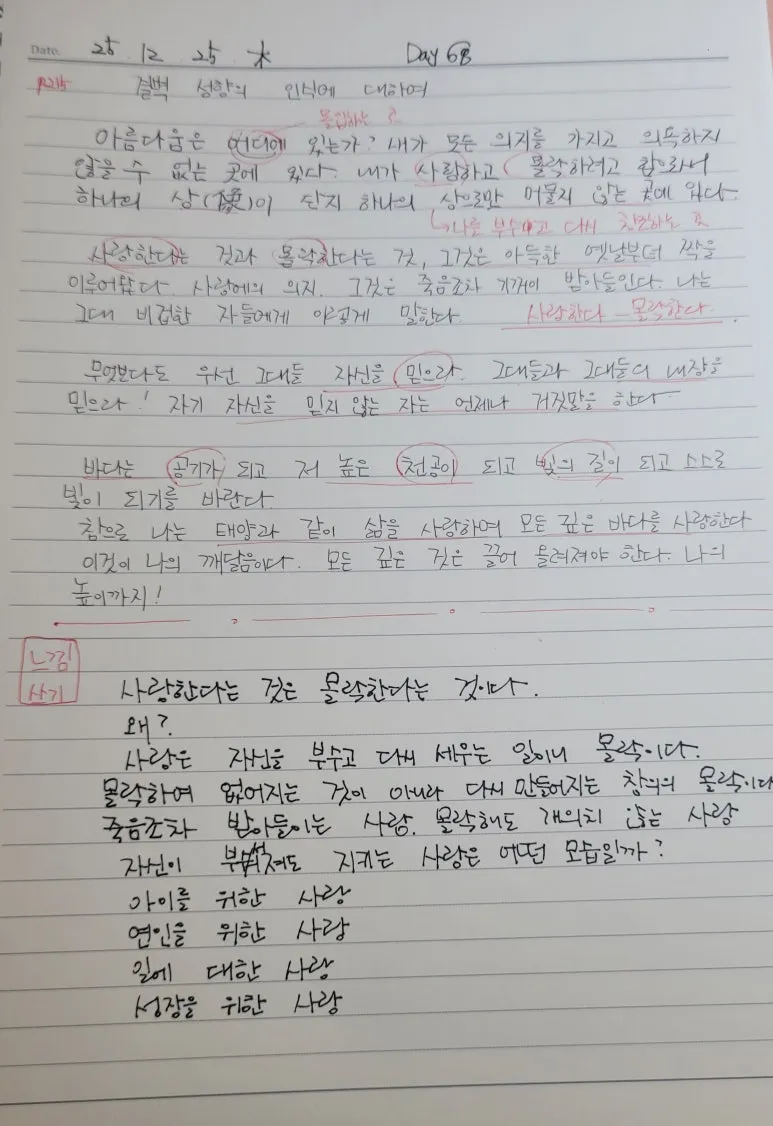 Date. 25 . 12 . 25 . 木 Day 68
p215 결벽 성향의 인식에 대하여
몰입하는 곳
아름다움은 어디에 있는가? 내가 모든 의지를 가지고 의욕하지
않을 수 없는 곳에 있다. 내가 사랑하고 몰락하려고 함으로써
하나의 상(像)이 단지 하나의 상으로만 머물지 않는 곳에 있다.
나를 부수고 다시 하는 곳
사랑한다는 것과 몰락한다는 것, 그것은 아득한 옛날부터 짝을
이루어왔다. 사랑에의 의지. 그것은 죽음조차 기꺼이 받아들인다. 나는
그대 비겁한 자들에게 이렇게 말한다. 사랑한다 - 몰락한다.
무엇보다도 우선 그대들 자신을 믿으라. 그대들과 그대들의 내장을
믿으라! 자기 자신을 믿지 않는 자는 언제나 거짓말을 한다
바다는 공기가 되고 저 높은 천공이 되고 빛의 길이 되고 스스로
빛이 되기를 바란다.
참으로 나는 태양과 같이 삶을 사랑하며 모든 깊은 바다를 사랑한다
이것이 나의 깨달음이다. 모든 깊은 것은 끌어 올려져야 한다. 나의
높이까지!
느낌
쓰기
사랑한다는 것은 몰락한다는 것이다.
왜?
사랑은 자신을 부수고 다시 세우는 일이니 몰락이다.
몰락하여 없어지는 것이 아니라 다시 만들어지는 창의의 몰락이다
죽음조차 받아들이는 사랑. 몰락해도 개의치 않는 사랑
자신이 부서져도 지키는 사랑은 어떤 모습일까?
아이를 위한 사랑
연인을 위한 사랑
일에 대한 사랑
성장을 위한 사랑